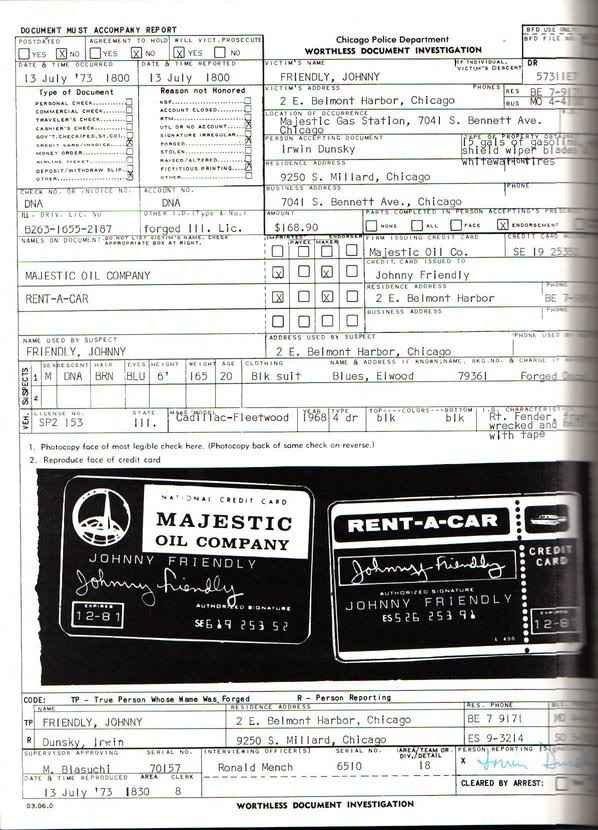 DOCUMENT MUST ACCOMPANY REPORT
POSTDATED AGREEMENT TO HOLD WILL VICT. PROSECUTE
YES X NO YES X NO X YES NO
Chicago Police Department
WORTHLESS DOCUMENT INVESTIGATION
DATE & TIME OCCURRED DATE & TIME REPORTED
13 July '73 1800 13 July '73 1800
VICTIM'S NAME IF INDIVIDUAL, VICTIM'S DESCENT DR
FRIENDLY, JOHNNY
Type of Document Reason not Honored
PERSONAL CHECK NSF
COMMERCIAL CHECK ACCOUNT CLOSED
TRAVELER'S CHECK RTM
CASHIER'S CHECK UTL OR NO ACCOUNT
GOV'T. CHECK(FED, ST, CO) SIGNATURE IRREGULAR
CREDIT CARD/INVOICE X FORGED X
MONEY ORDER STOLEN
AIRLINE TICKET RAISED/ALTERED
DEPOSIT/WITHDRAW SLIP FICTITIOUS PRINTING
OTHER OTHER
VICTIM'S ADDRESS PHONES RES
2 E. Belmont Harbor, Chicago BUS
LOCATION OF OCCURRENCE
Majestic Gas Station, 7041 S. Bennett Ave.
Chicago
PERSON ACCEPTING DOCUMENT TYPE OF PROPERTY OBTAINED
Irwin Dunsky 15 gals of gasoline
shield wiper blades
RESIDENCE ADDRESS PHONE
whitewall tires
9250 S. Millard, Chicago
BUSINESS ADDRESS PHONE
7041 S. Bennett Ave., Chicago
CHECK NO. OR INVOICE NO. ACCOUNT NO.
DNA DNA
ILL. DRIV. LIC. NO OTHER I.D.(Type & No.)
B263-1655-2187 forged Ill. Lic.
AMOUNT PARTS COMPLETED IN PERSON ACCEPTING'S
$168.90 NONE ALL FACE X ENDORSEMENT
NAMES ON DOCUMENT. DO NOT LIST VICTIM'S NAME. CHECK
APPROPRIATE BOX AT RIGHT.
IMPRINTED PAYEE MAKER ENDORSER
FIRM ISSUING CREDIT CARD
Majestic Oil Co.
CREDIT CARD ISSUED TO
MAJESTIC OIL COMPANY X X Johnny Friendly
RESIDENCE ADDRESS PHONE
RENT-A-CAR X X 2 E. Belmont Harbor
BUSINESS ADDRESS PHONE
NAME USED BY SUSPECT ADDRESS USED BY SUSPECT PHONE USED
FRIENDLY, JOHNNY 2 E. Belmont Harbor, Chicago
SUSPECTS SEX DESCENT HAIR EYES HEIGHT WEIGHT AGE CLOTHING NAME & ADDRESS IF KNOWN; NAME, BKG.NO. & CHARGE IF
1 M DNA BRN BLU 6' 165 20 Blk suit Blues, Elwood 79361 Forged
2
VEH. LICENSE NO. STATE MAKE MODEL YEAR TYPE TOP COLORS BOTTOM
SP2 153 Ill. Cadillac-Fleetwood 1968 4 dr blk blk Rt. Fender,
wrecked and
with tape
1. Photocopy face of most legible check here. (Photocopy back of same check on reverse.)
2. Reproduce face of credit card
NATIONAL CREDIT CARD
MAJESTIC
OIL COMPANY
JOHNNY FRIENDLY
Johnny Friendly
AUTHORIZED SIGNATURE
EXPIRES
12-81
SE619 253 52
RENT-A-CAR
CREDIT
CARD
Johnny Friendly
AUTHORIZED SIGNATURE
JOHNNY FRIENDLY
ES526 253 91
12-8
CODE: TP - True Person Whose Name Was Forged R - Person Reporting
NAME RESIDENCE ADDRESS RES. PHONE
TP FRIENDLY, JOHNNY 2 E. Belmont Harbor, Chicago BE 7 9171
R Dunsky, Irwin 9250 S. Millard, Chicago ES 9-3214
SUPERVISOR APPROVING SERIAL NO. INTERVIEWING OFFICER(S) SERIAL NO. AREA/TEAM OR DIV./DETAIL PERSON REPORTING
M. Blasuchi 70157 Ronald Mench 6510 18 X
DATE & TIME REPRODUCED AREA CLERK
13 July '73 1830 8
CLEARED BY ARREST:
03.06.0 WORTHLESS DOCUMENT INVESTIGATION